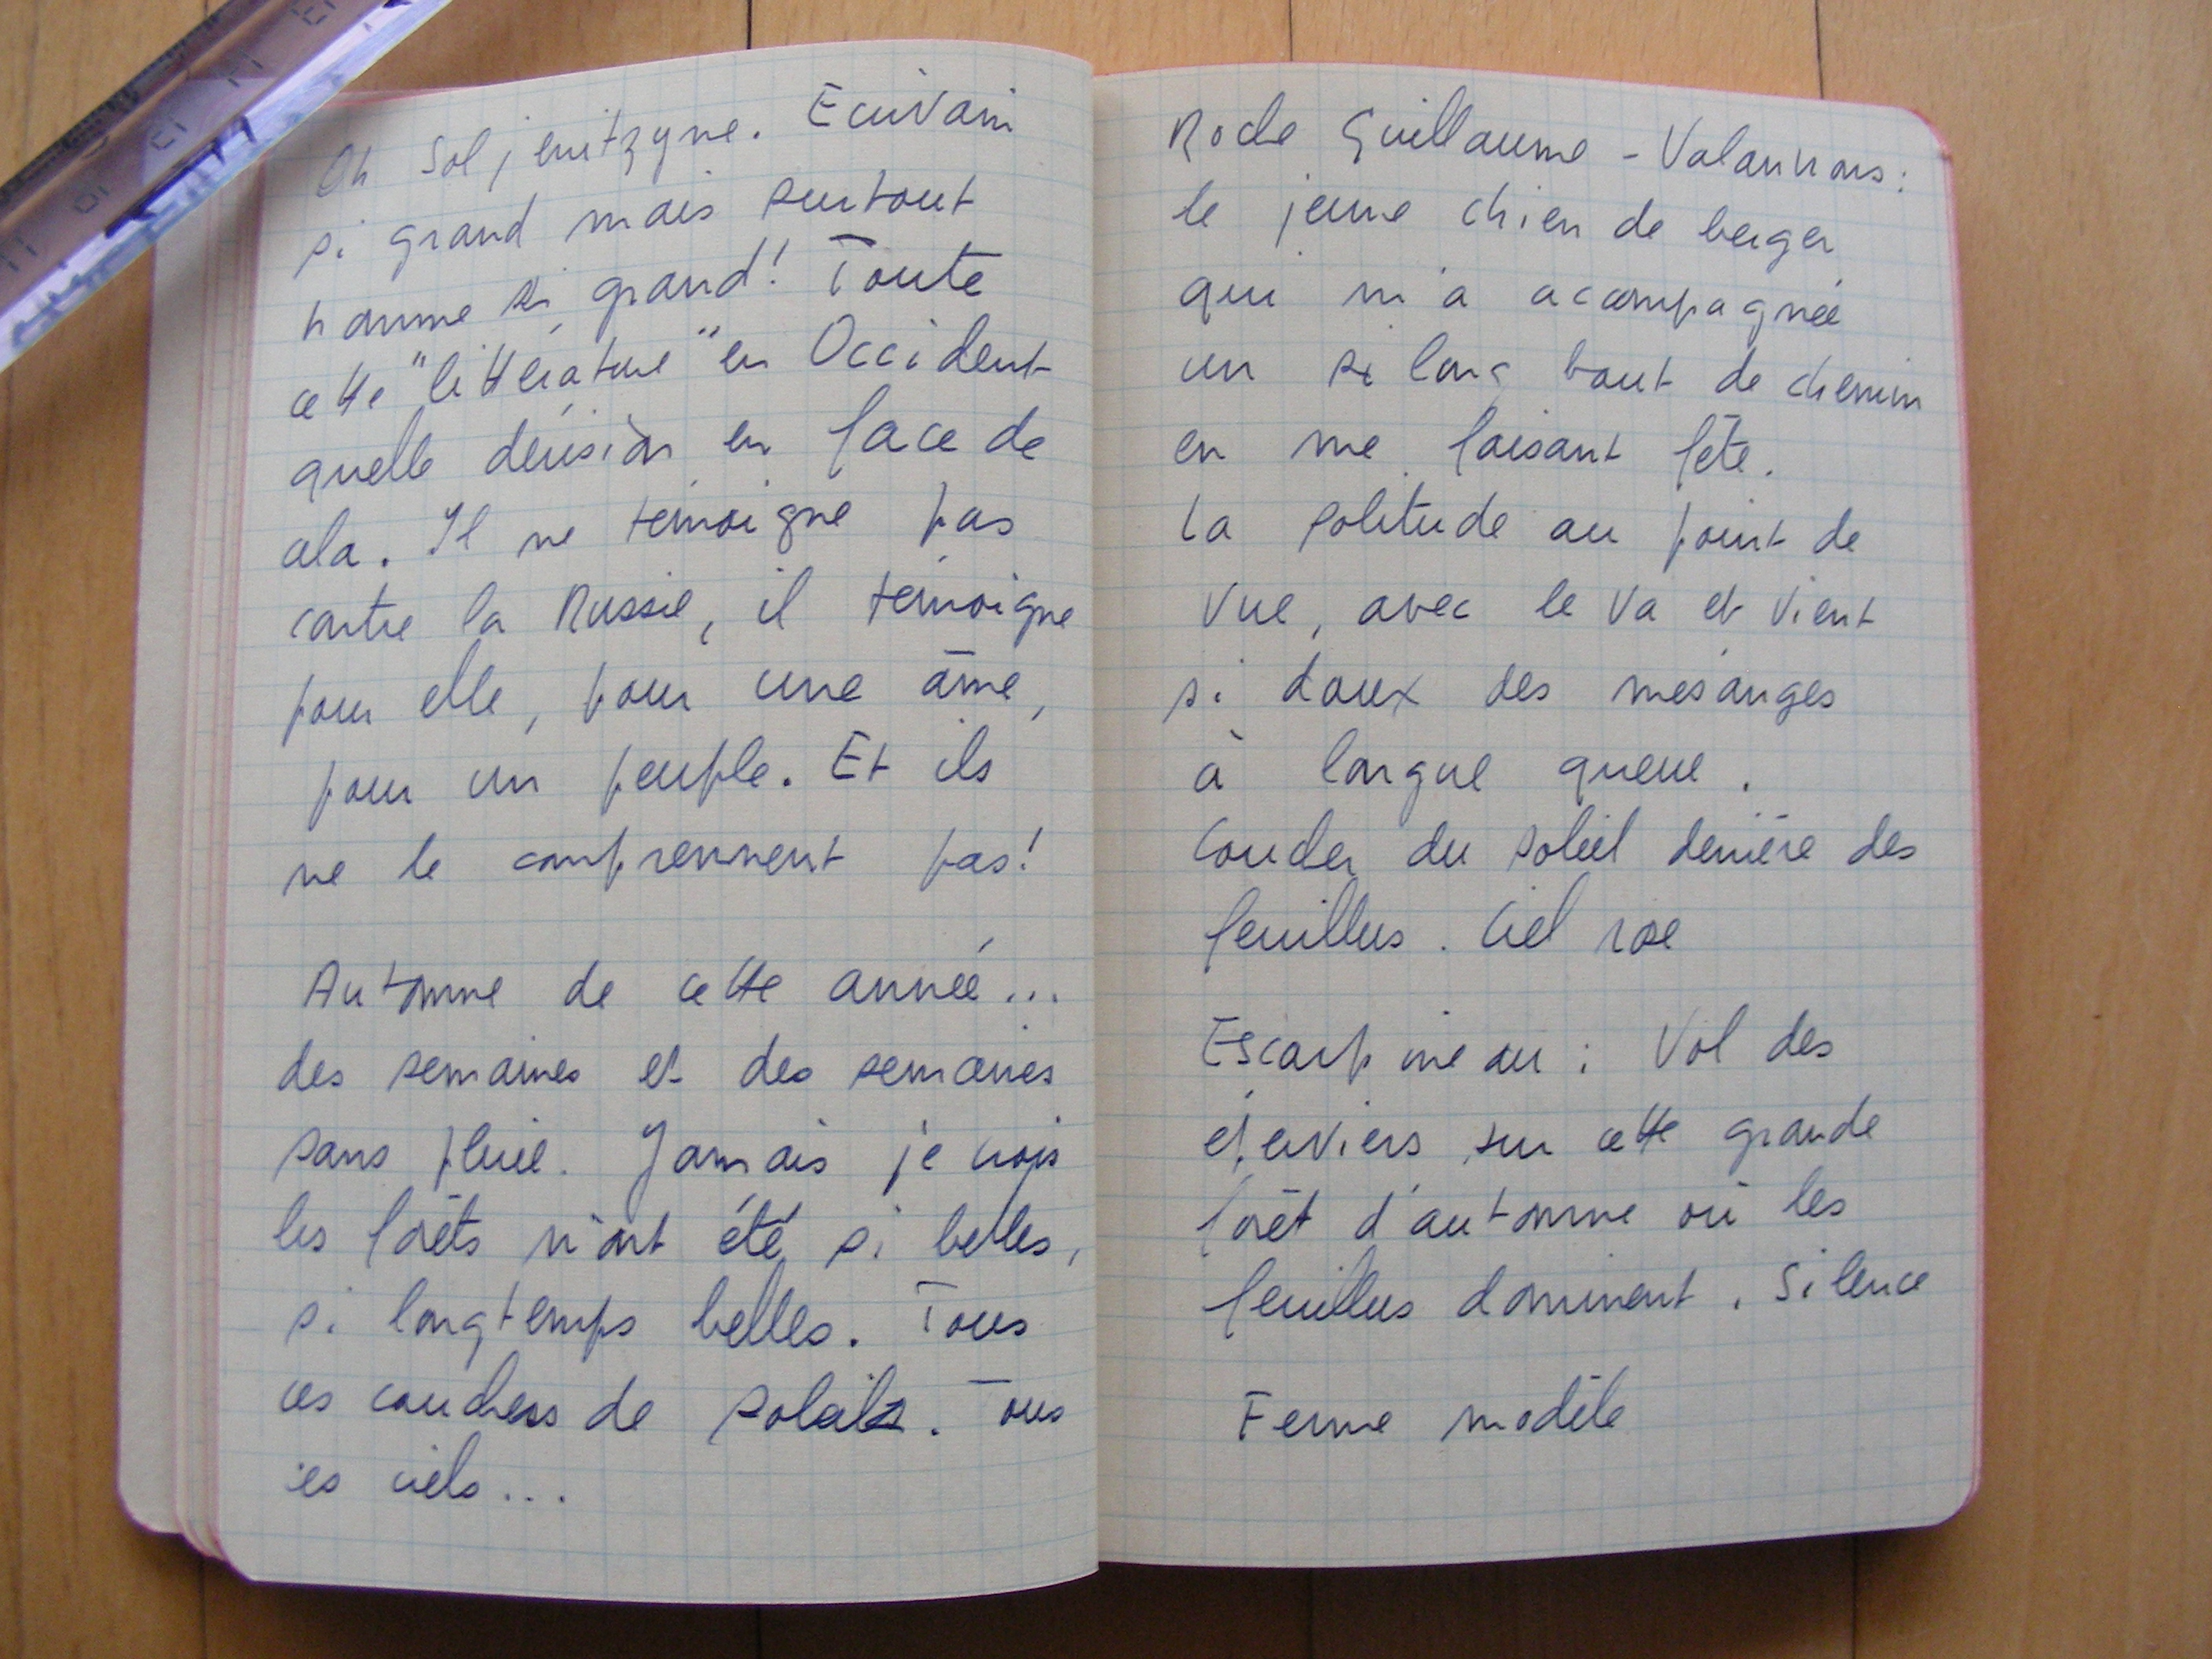 Oh Soljenitzyne. Ecrivain
si grand mais surtout
homme si grand! Toute
cette "littérature" en Occident
quelle dérision en face de
cela. Il ne témoigne pas
contre la Russie, il témoigne
pour elle, pour une âme,
pour un peuple. Et ils
ne le comprennent pas!
Automne de cette année...
des semaines et des semaines
sans pluie. Jamais je crois
les forêts n'ont été si belles,
si longtemps belles. Tous
ces couchers de soleils. Tous
ces ciels...
Roche Guillaume - Valannons:
le jeune chien de berger
qui m'a accompagnée
un si long bout de chemin
en me faisant fête.
La solitude au point de
vue, avec le va et vient
si doux des mésanges
à longue queue.
Coucher du soleil derrière des
feuillus. Ciel rose
Escarpineau: Vol des
éperviers sur cette grande
forêt d'automne où les
feuillus dominent. Silence
Ferme modèle